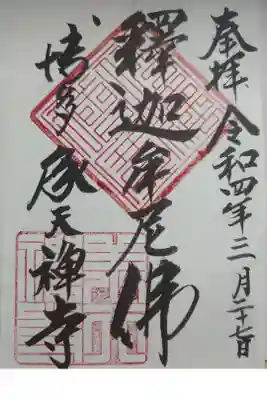 奉拝 令和四年三月二十七日
釋迦牟尼佛
博多 承天禅寺